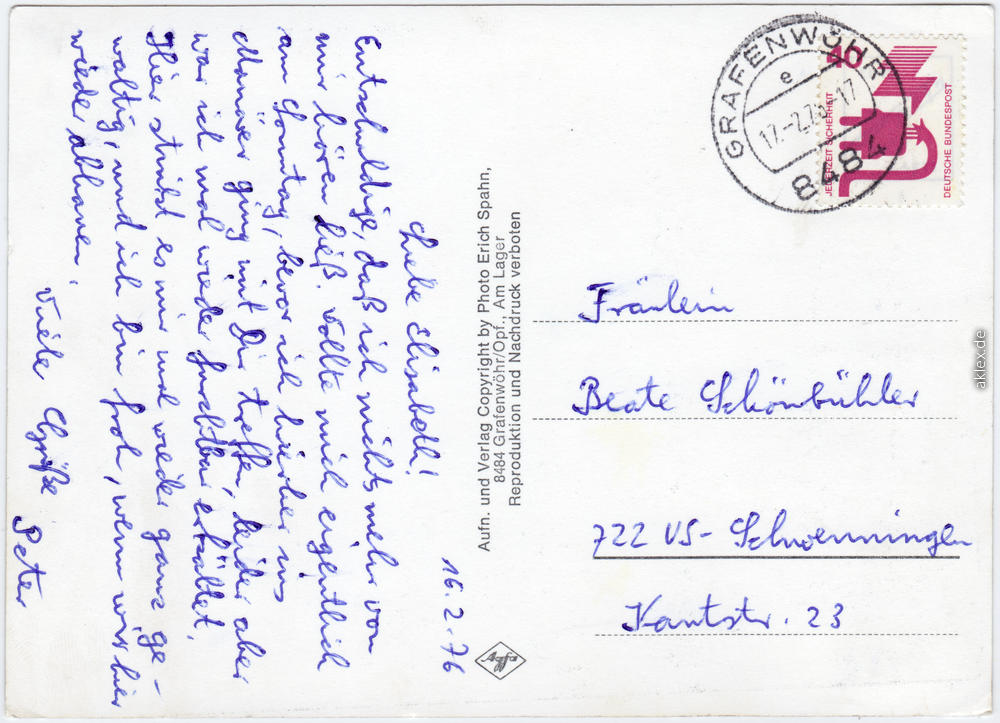 16.2.76
Liebe Elisabeth!
Entschuldige, daß ich nichts mehr von
mir hören ließ. Wollte mich eigentlich
am Sonntag, bevor ich hierher ins
Manöver ging mit Dir treffen, leider aber
war ich mal wieder furchtbar erkältet.
Hier stinkt es mir mal wieder ganz ge-
waltig, und ich bin froh, wenn wir hier
wieder abhauen!
Viele Grüße
Peter
Aufn. und Verlag Copyright by Photo Erich Spahn,
8484 Grafenwöhr/Opf., Am Lager
Reproduktion und Nachdruck verboten
Agfa
GRAFENWÖHR
e
17.-2.76-17
8484
40
JEDERZEIT SICHERHEIT
DEUTSCHE BUNDESPOST
Fräulein
Beate Schönbühler
722 VS-Schwenningen
Kantstr. 23
aklex.de